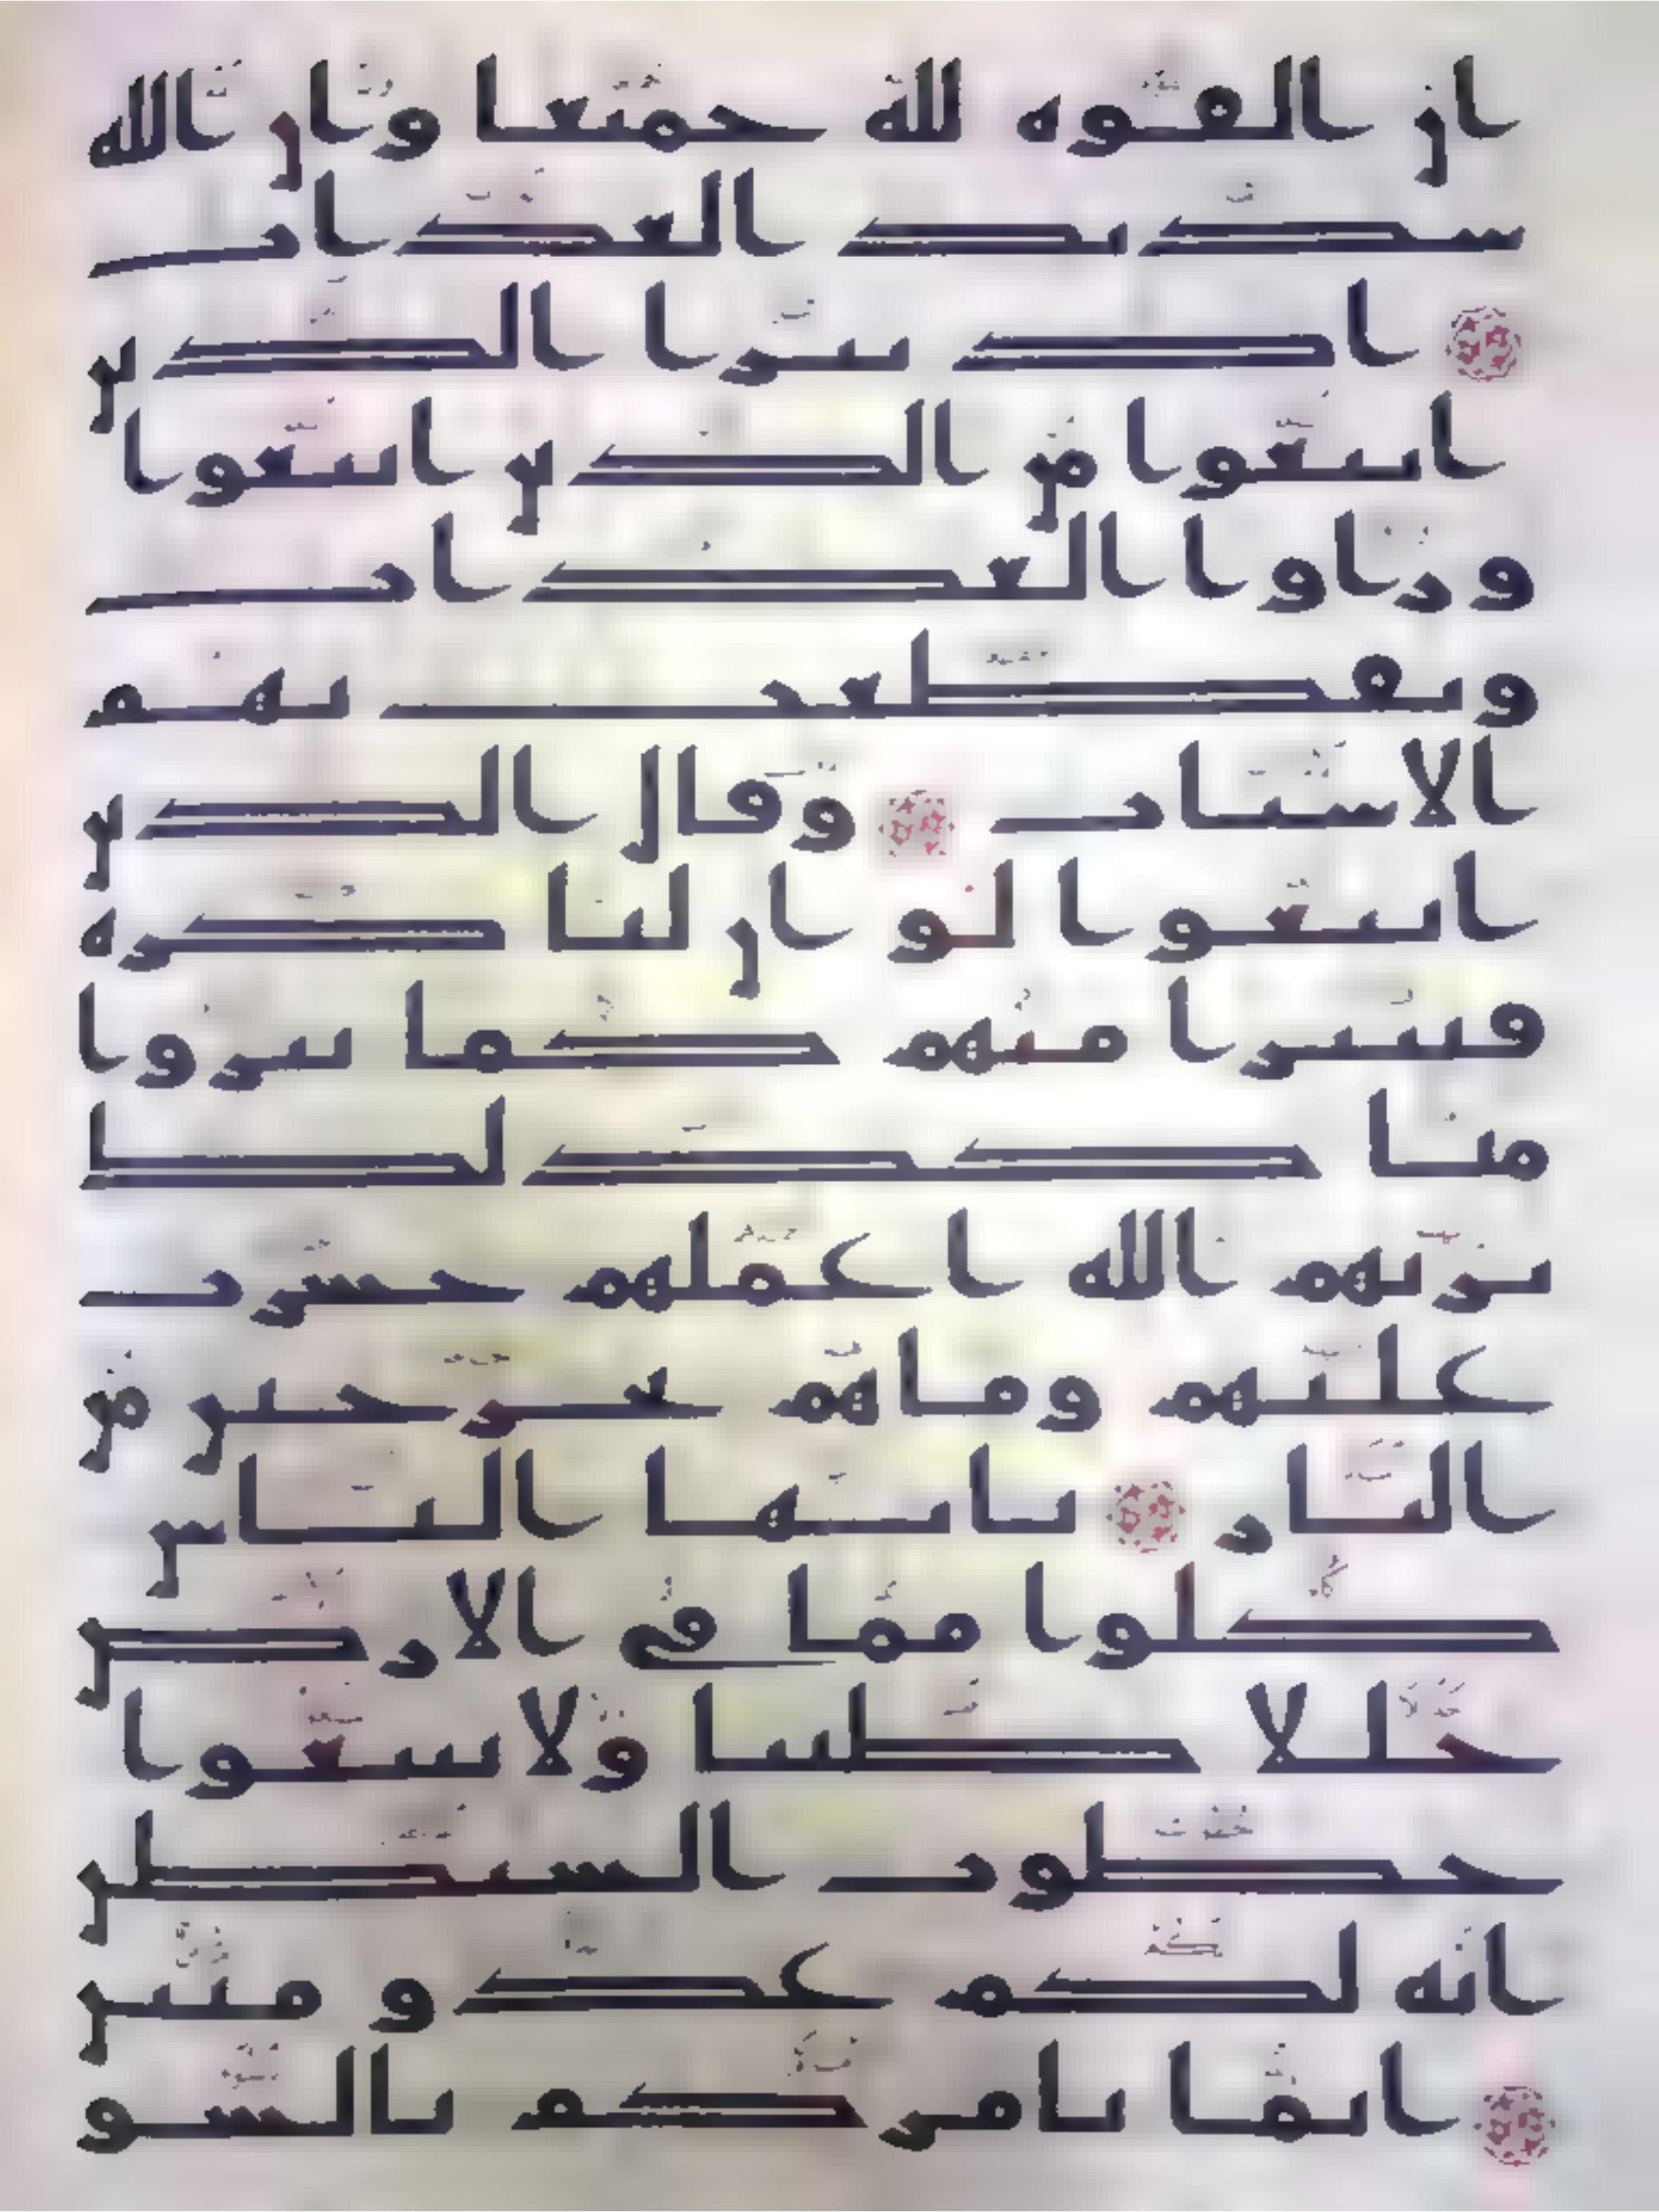 ان القوه لله جميعا وان الله
شديد العذاب
اذ تبرا الذين
اتبعوا من الذين اتبعوا
وراوا العذاب
وتقطعت بهم
الاسباب وقال الذين
اتبعوا لو ان لنا كره
فنتبرا منهم كما تبروا
منا كذلك
يريهم الله اعملهم حسرت
عليهم وما هم بخرجين من
النار يايها الناس
كلوا مما في الارض
حللا طيبا ولا تتبعوا
خطوت الشيطن
انه لكم عدو مبين
انما يامركم بالسو